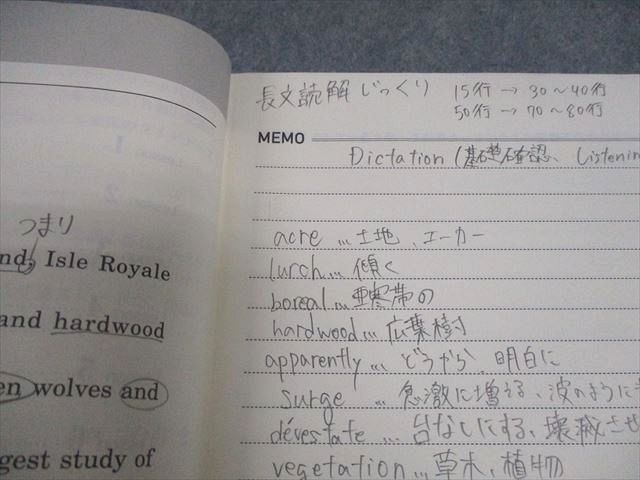 つまり
nd, Isle Royale
and hardwood
en wolves and
gest study of
長文読解 じっくり 15行 → 30〜40行
50行 → 70〜80行
MEMO
Dictation (基礎確認、Listenin
acre … 土地、エーカー
lurch … 傾く
boreal … 亜寒帯の
hardwood … 広葉樹
apparently … どうやら、明白に
surge … 急激に増える、波のように
dévestate … 台なしにする、壊滅させ
vegetation … 草木、植物